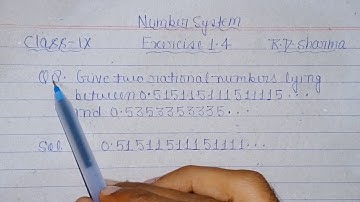 Number System
Class-IX Exercise 1.4 R.D. sharma
Q8. Give two rational numbers lying
between 0.515115111511115...
and 0.5353353335...
Sol. 0.51511511151111...